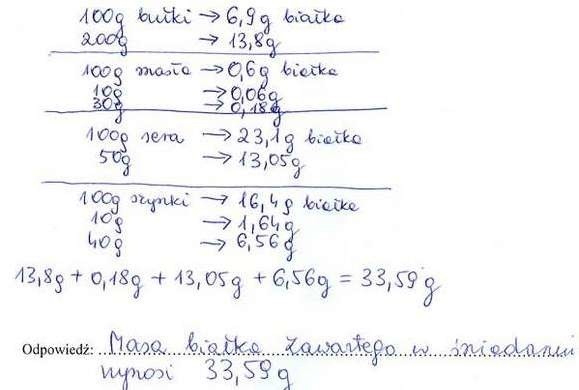 100g bułki → 6,9g białka
200g → 13,8g
100g masła → 0,6g białka
10g → 0,06g
30g → 0,18g
100g sera → 23,1g białka
50g → 13,05g
100g szynki → 16,4g białka
10g → 1,64g
40g → 6,56g
13,8g + 0,18g + 13,05g + 6,56g = 33,59 g
Odpowiedź: Masa białka zawartego w śniadaniu
wynosi 33,59g